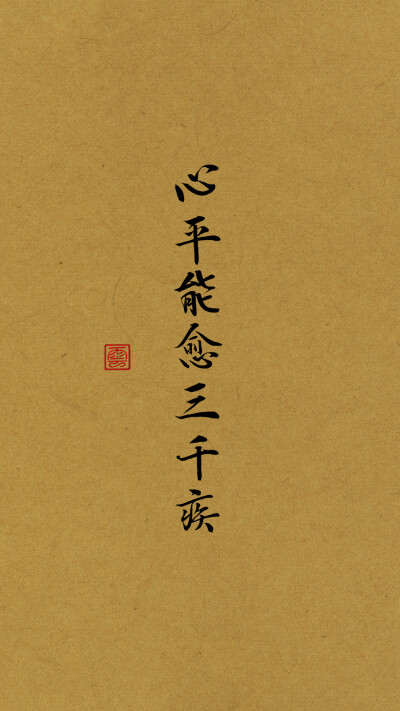 心平能愈三千疾
雲